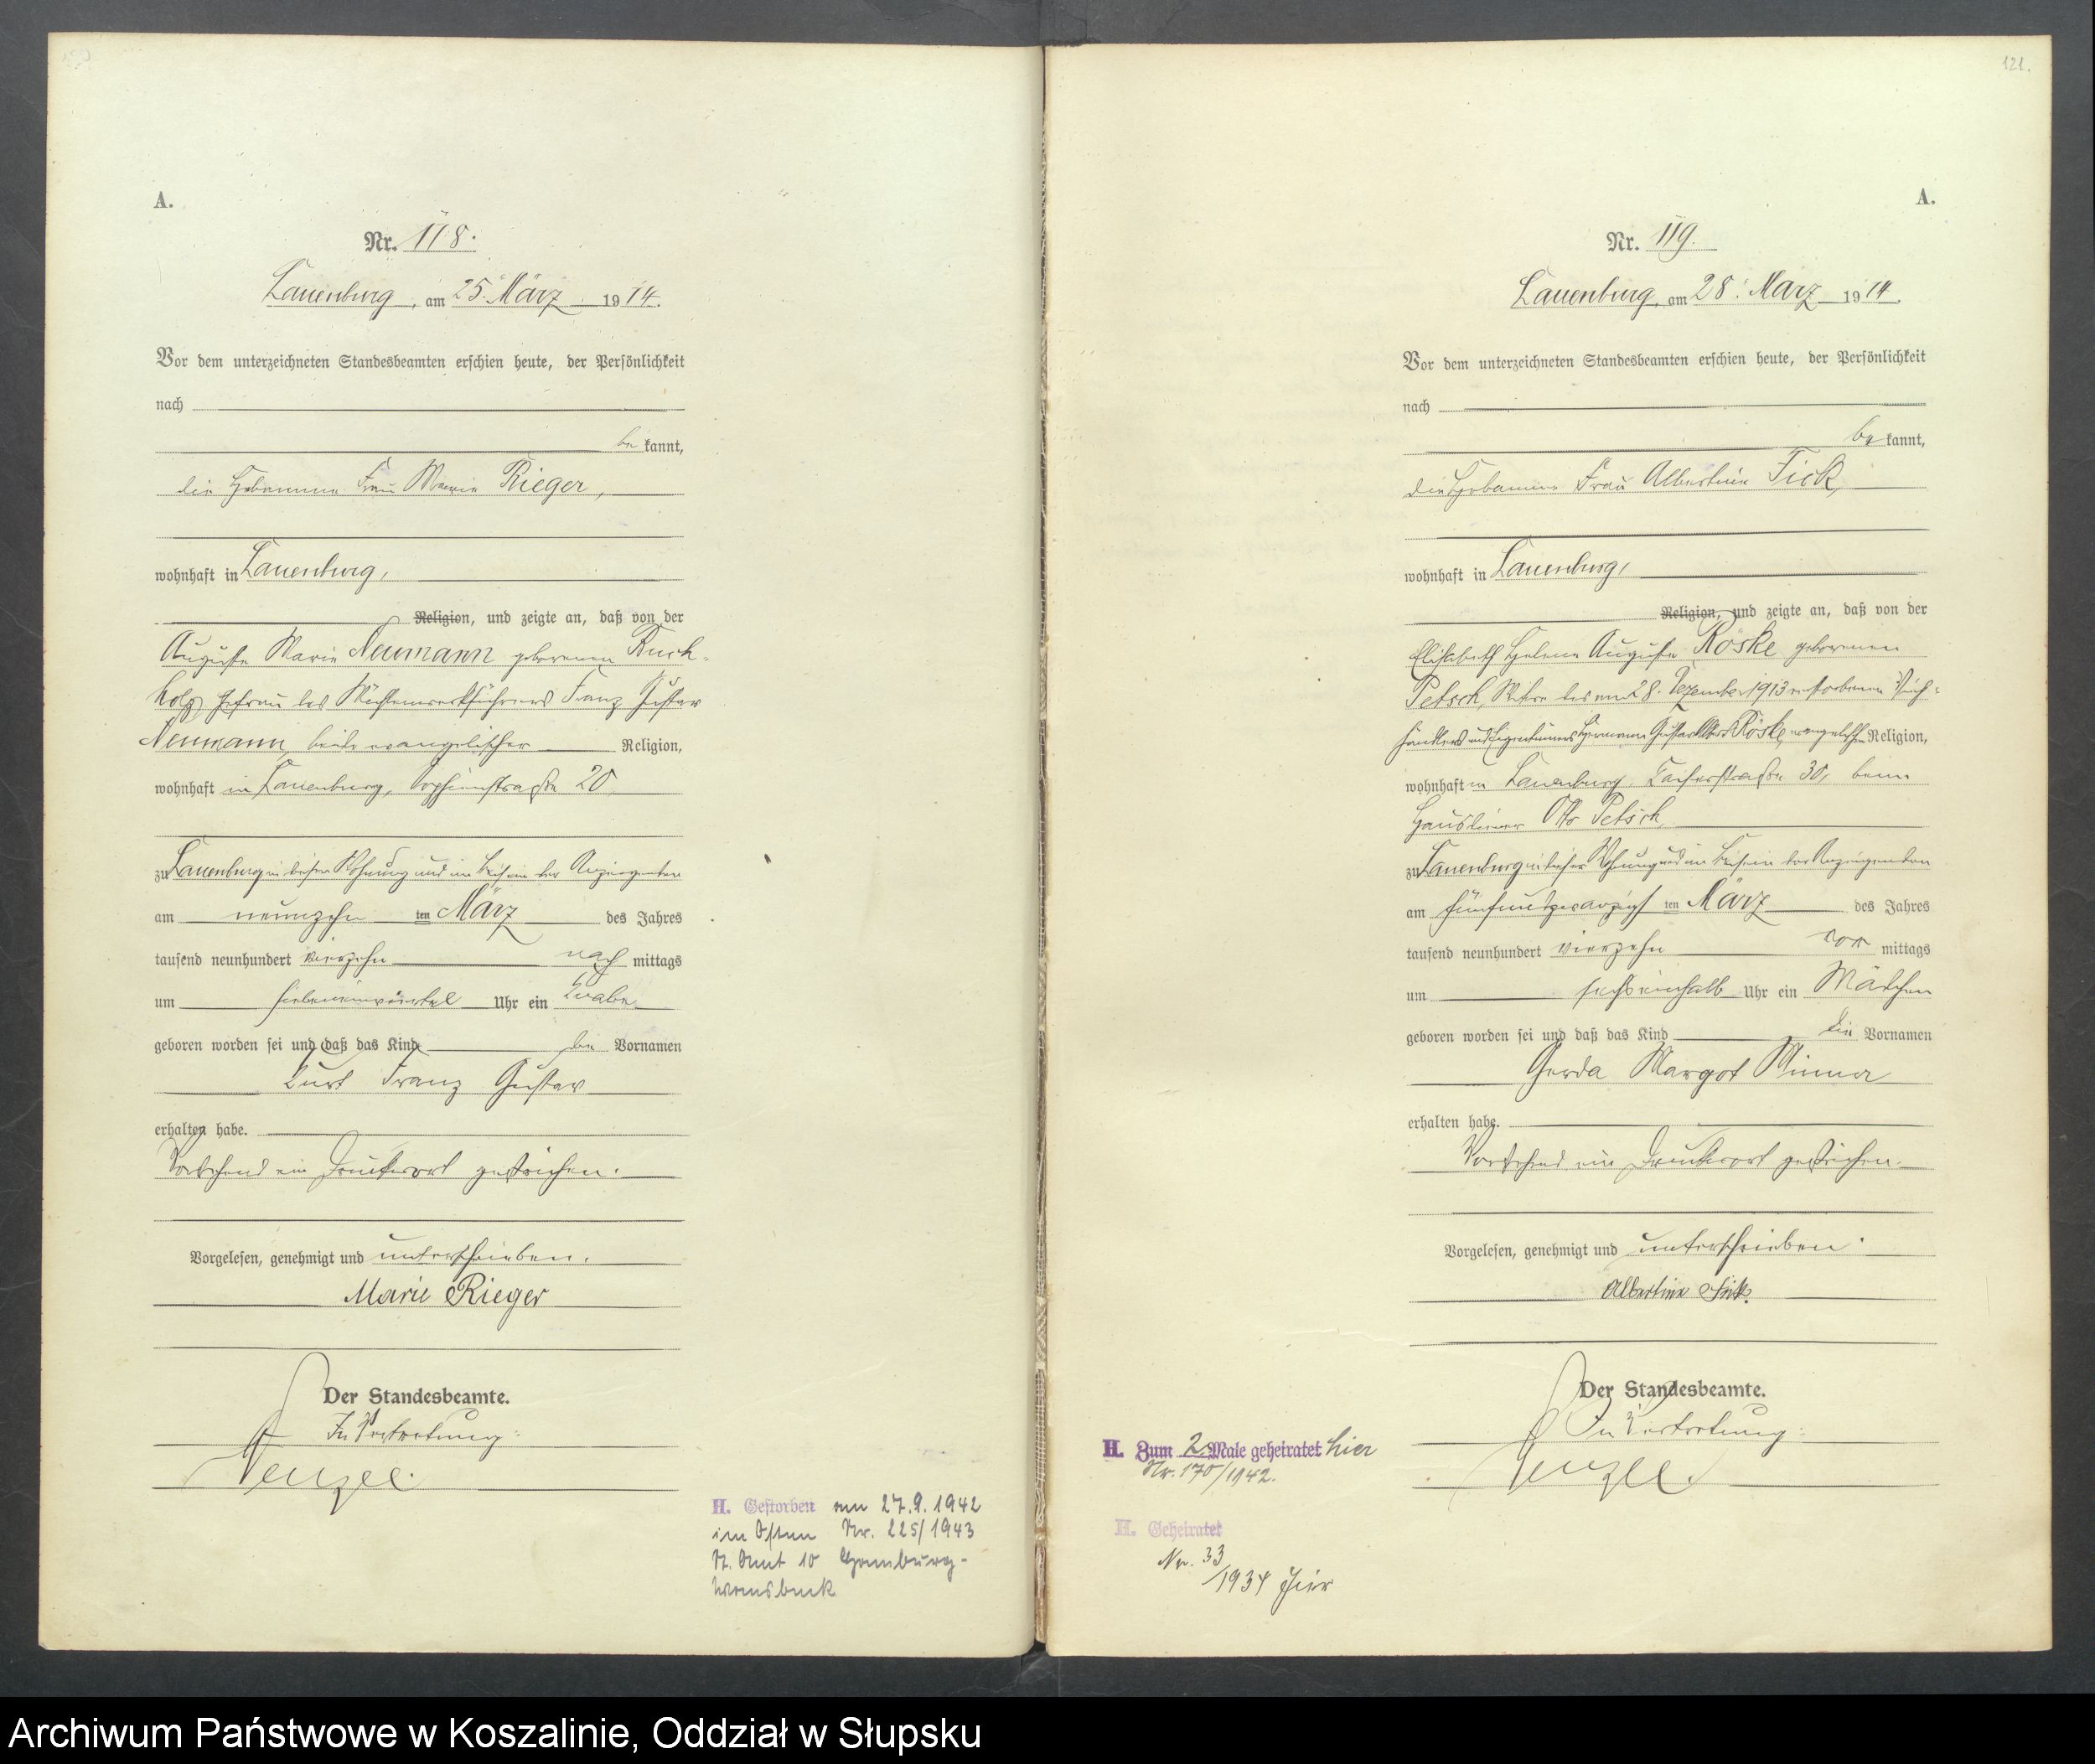 A.
Nr. 118.
Lauenburg, am 25. März 1914.
Vor dem unterzeichneten Standesbeamten erschien heute, der Persönlichkeit
nach
bekannt,
die Hebamme Frau Marie Rieger,
wohnhaft in Lauenburg,
Religion, und zeigte an, daß von der
Auguste Marie Neumann geborenen Buch-
holz Ehefrau des Franz Gustav
Neumann, beide evangelischer Religion,
wohnhaft in Lauenburg, 20,
zu Lauenburg in dieser Wohnung und im Beisein der Anzeigenden
am neunzehnten März des Jahres
tausend neunhundert vierzehn nachmittags
um sieben einviertel Uhr ein Knabe
geboren worden sei und daß das Kind die Vornamen
Kurt Franz Gustav
erhalten habe.
Vorstehend ein Druckwort gestrichen.
Vorgelesen, genehmigt und unterschrieben.
Marie Rieger
Der Standesbeamte.
In Vertretung:
Wenzel.
H. Gestorben am 27.9.1942
im Osten Nr. 225/1943
St. Amt 10 Hamburg-
Wandsbek
121.
A.
Nr. 119.
Lauenburg, am 28. März 1914.
Vor dem unterzeichneten Standesbeamten erschien heute, der Persönlichkeit
nach
bekannt,
die Hebamme Frau Albertine Fick,
wohnhaft in Lauenburg,
Religion, und zeigte an, daß von der
Elisabeth Helene Auguste Röske geborenen
Petsch, Witwe des am 28. Dezember 1913 verstorbenen Vieh-
händlers und Eigentümers Hermann Gustav Albert Röske, evangelischer Religion,
wohnhaft in Lauenburg, 30, beim
Otto Petsch,
zu Lauenburg in dieser Wohnung und im Beisein der Anzeigenden
am fünfundzwanzigsten März des Jahres
tausend neunhundert vierzehn vormittags
um sechseinhalb Uhr ein Mädchen
geboren worden sei und daß das Kind die Vornamen
Gerda Margot Minna
erhalten habe.
Vorstehend ein Druckwort gestrichen.
Vorgelesen, genehmigt und unterschrieben.
Albertine Fick.
Der Standesbeamte.
In Vertretung:
Wenzel.
H. Zum 2. Male geheiratet hier
Nr. 170/1942.
H. Geheiratet
Nr. 33
/1934 hier
Archiwum Państwowe w Koszalinie, Oddział w Słupsku